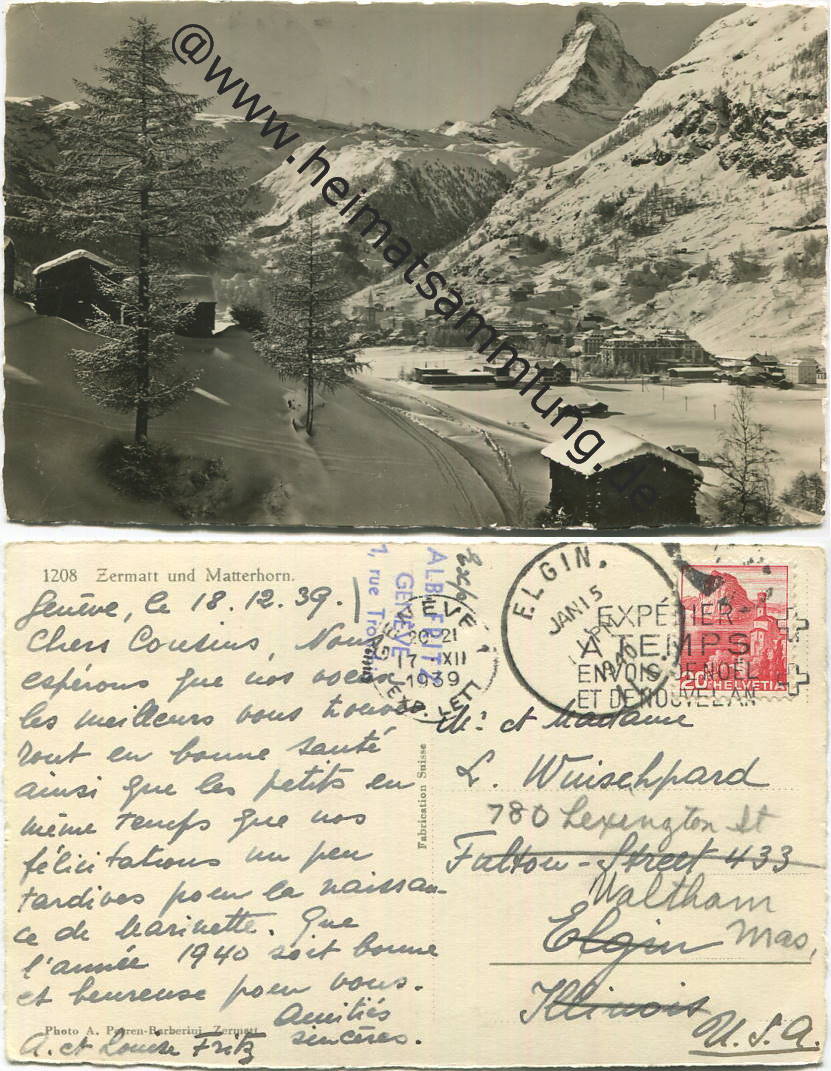 @www.heimatsammlung.de
1208 Zermatt und Matterhorn.
Genève, le 18.12.39.
Chers Cousins, Nous
espérons que nos voeux
les meilleurs vous trouve
ront en bonne santé
ainsi que les petits en
même temps que nos
félicitations un peu
tardives pour la naissan-
ce de Marinette. Que
l'année 1940 soit bonne
et heureuse pour vous.
Amitiés
sincères.
A. et Louise Fritz
Photo A. Perren-Barberini, Zermatt
Fabrication Suisse
ALB. FRITZ
GENÈVE
1, rue
GENÈVE
20-21
17.XII
1939
EXP. LETT.
ELGIN,
JAN 15
PM
1940
EXPÉDIER
A TEMPS
ENVOIS DE NOËL
ET DE NOUVEL AN
20 HELVETIA
Mr. et Madame
L. Wuischpard
780 Lexington St
Fulton-Street 433
Waltham
Elgin Mas,
Illinois
U.S.A.